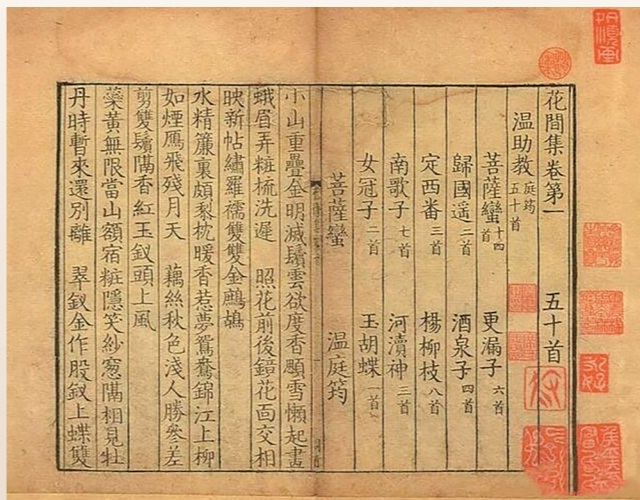 花間集卷第一 五十首
温助教庭筠五十首
菩薩蠻十四首 更漏子六首
歸國遥二首 酒泉子四首
定西番三首 楊柳枝八首
南歌子七首 河瀆神三首
女冠子二首 玉胡蝶一首
菩薩蠻 温庭筠
小山重疊金明滅鬢雲欲度香顋雪懶起畫
蛾眉弄粧梳洗遲 照花前後鏡花面交相
映新帖繡羅襦雙雙金鷓鴣
水精簾裏頗梨枕暖香惹夢鴛鴦錦江上柳
如煙鴈飛殘月天 藕絲秋色淺人勝參差
剪雙鬢隔香紅玉釵頭上風
蘂黄無限當山額宿粧隱笑紗窻隔相見牡
丹時暫來還別離 翠釵金作股釵上蝶雙